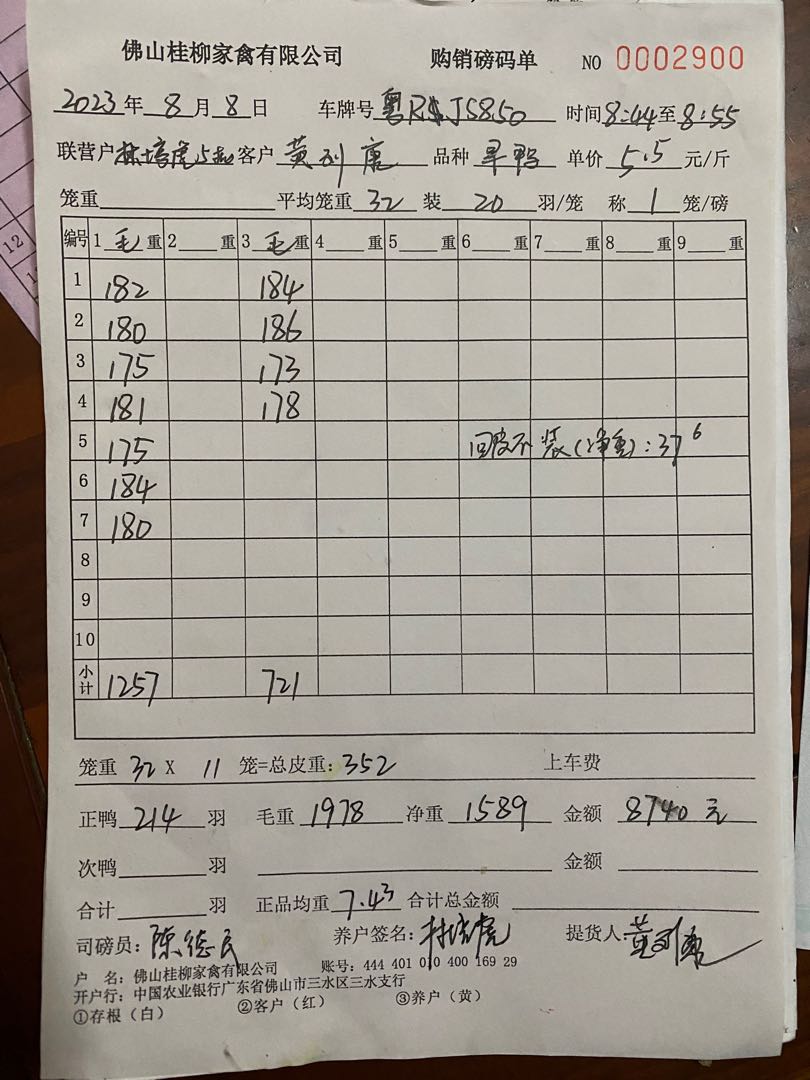 佛山桂柳家禽有限公司 购销磅码单 NO 0002900
2023年 8 月 8 日 车牌号 粤R JS850 时间 8:44至 8:55
联营户 林培虎 客户 黄 康 品种 旱鸭 单价 5.5 元/斤
笼重 平均笼重 32 装 20 羽/笼 称 1 笼/磅
编号 1 毛 重 2 重 3 毛 重 4 重 5 重 6 重 7 重 8 重 9 重
1 182 184
2 180 186
3 175 173
4 181 178
5 175 回皮不装(净重):37.6
6 184
7 180
8
9
10
小计 1257 721
笼重 32 X 11 笼=总皮重: 352 上车费
正鸭 214 羽 毛重 1978 净重 1589 金额 8740 元
次鸭 羽 金额
合计 羽 正品均重 7.43 合计总金额
司磅员: 陈德民 养户签名: 林培虎 提货人: 黄 康
户 名: 佛山桂柳家禽有限公司 账号: 444 401 010 400 169 29
开户行: 中国农业银行广东省佛山市三水区三水支行
①存根(白) ②客户(红) ③养户(黄)
12